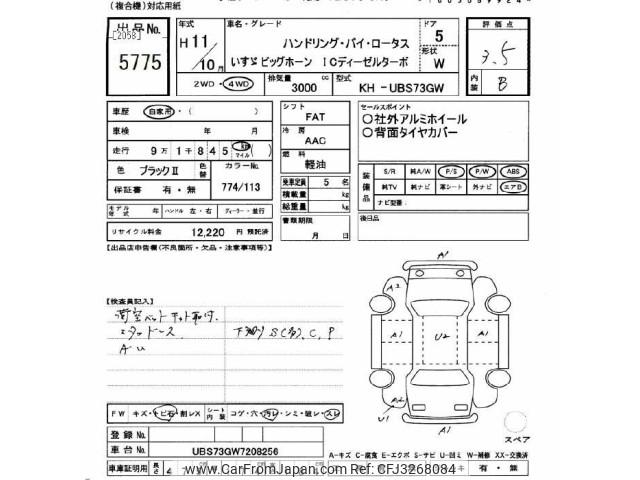 (複合機)対応用紙
出品No.
[2058]
5775
年式
H11/10月
車名・グレード
ハンドリング・バイ・ロータス
いすゞビッグホーン ICディーゼルターボ
ドア
5
形状
W
評価点
3.5
内装
B
2WD・4WD
排気量
3000 cc
型式
KH-UBS73GW
車歴 自家用・( )
車検 年 月
走行 9万1千845 km マイル
色 ブラックⅡ 色替
カラーNo.
774/113
保証書 有・無
モデル年式 年 ハンドル 左・右 ディーラー・並行
リサイクル料金 12,220 円 預託済
シフト
FAT
冷房
AAC
燃料
軽油
乗車定員 5 名
積載量 kg
総重量 kg
書類期限
月 日
セールスポイント
○社外アルミホイール
○背面タイヤカバー
装備品
S/R 純A/W P/S P/W ABS
純TV 純ナビ 革シート 外ナビ エアB
ナビ型番:
後日品
【出品店申告欄(不良箇所・欠品・注意事項等)】
【検査員記入】
A1
A2
A1
U2
A1
A2
U1
A1
スペア
FW キズ・トビ石・割レX シート内装 コゲ・穴・汚レ・シミ・破レ・スレ
登録No.
車台No. UBS73GW7208256
A-キズ C-腐食 E-エクボ S-サビ U-凹ミ W-補修 XX-交換済
車庫証明用 長さ
有・無
www.CarFromJapan.com Ref: CFJ3268084